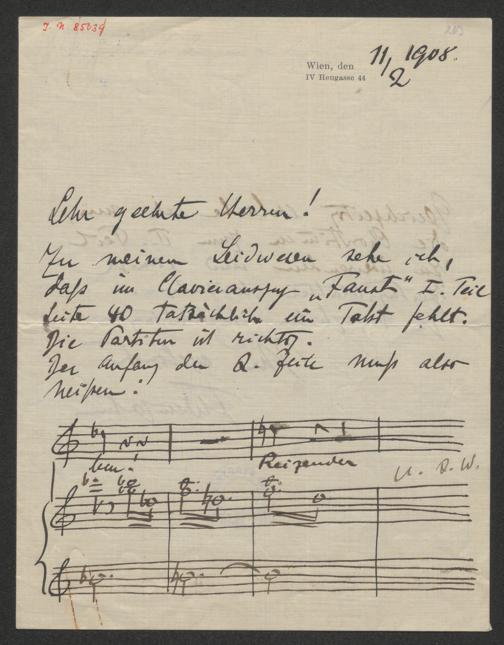 J. N. 85039
Wien, den 11/2 1908.
IV Heugasse 44
Sehr geehrte Herren!
Zu meinem Leidwesen sehe ich,
daß im Clavierauszug „Faust" I. Teil
Seite 40 tatsächlich ein Takt fehlt.
Die Partitur ist richtig.
Der Anfang der 2. Zeile muß also
heißen:
ben!
Reizender
u. s. w.